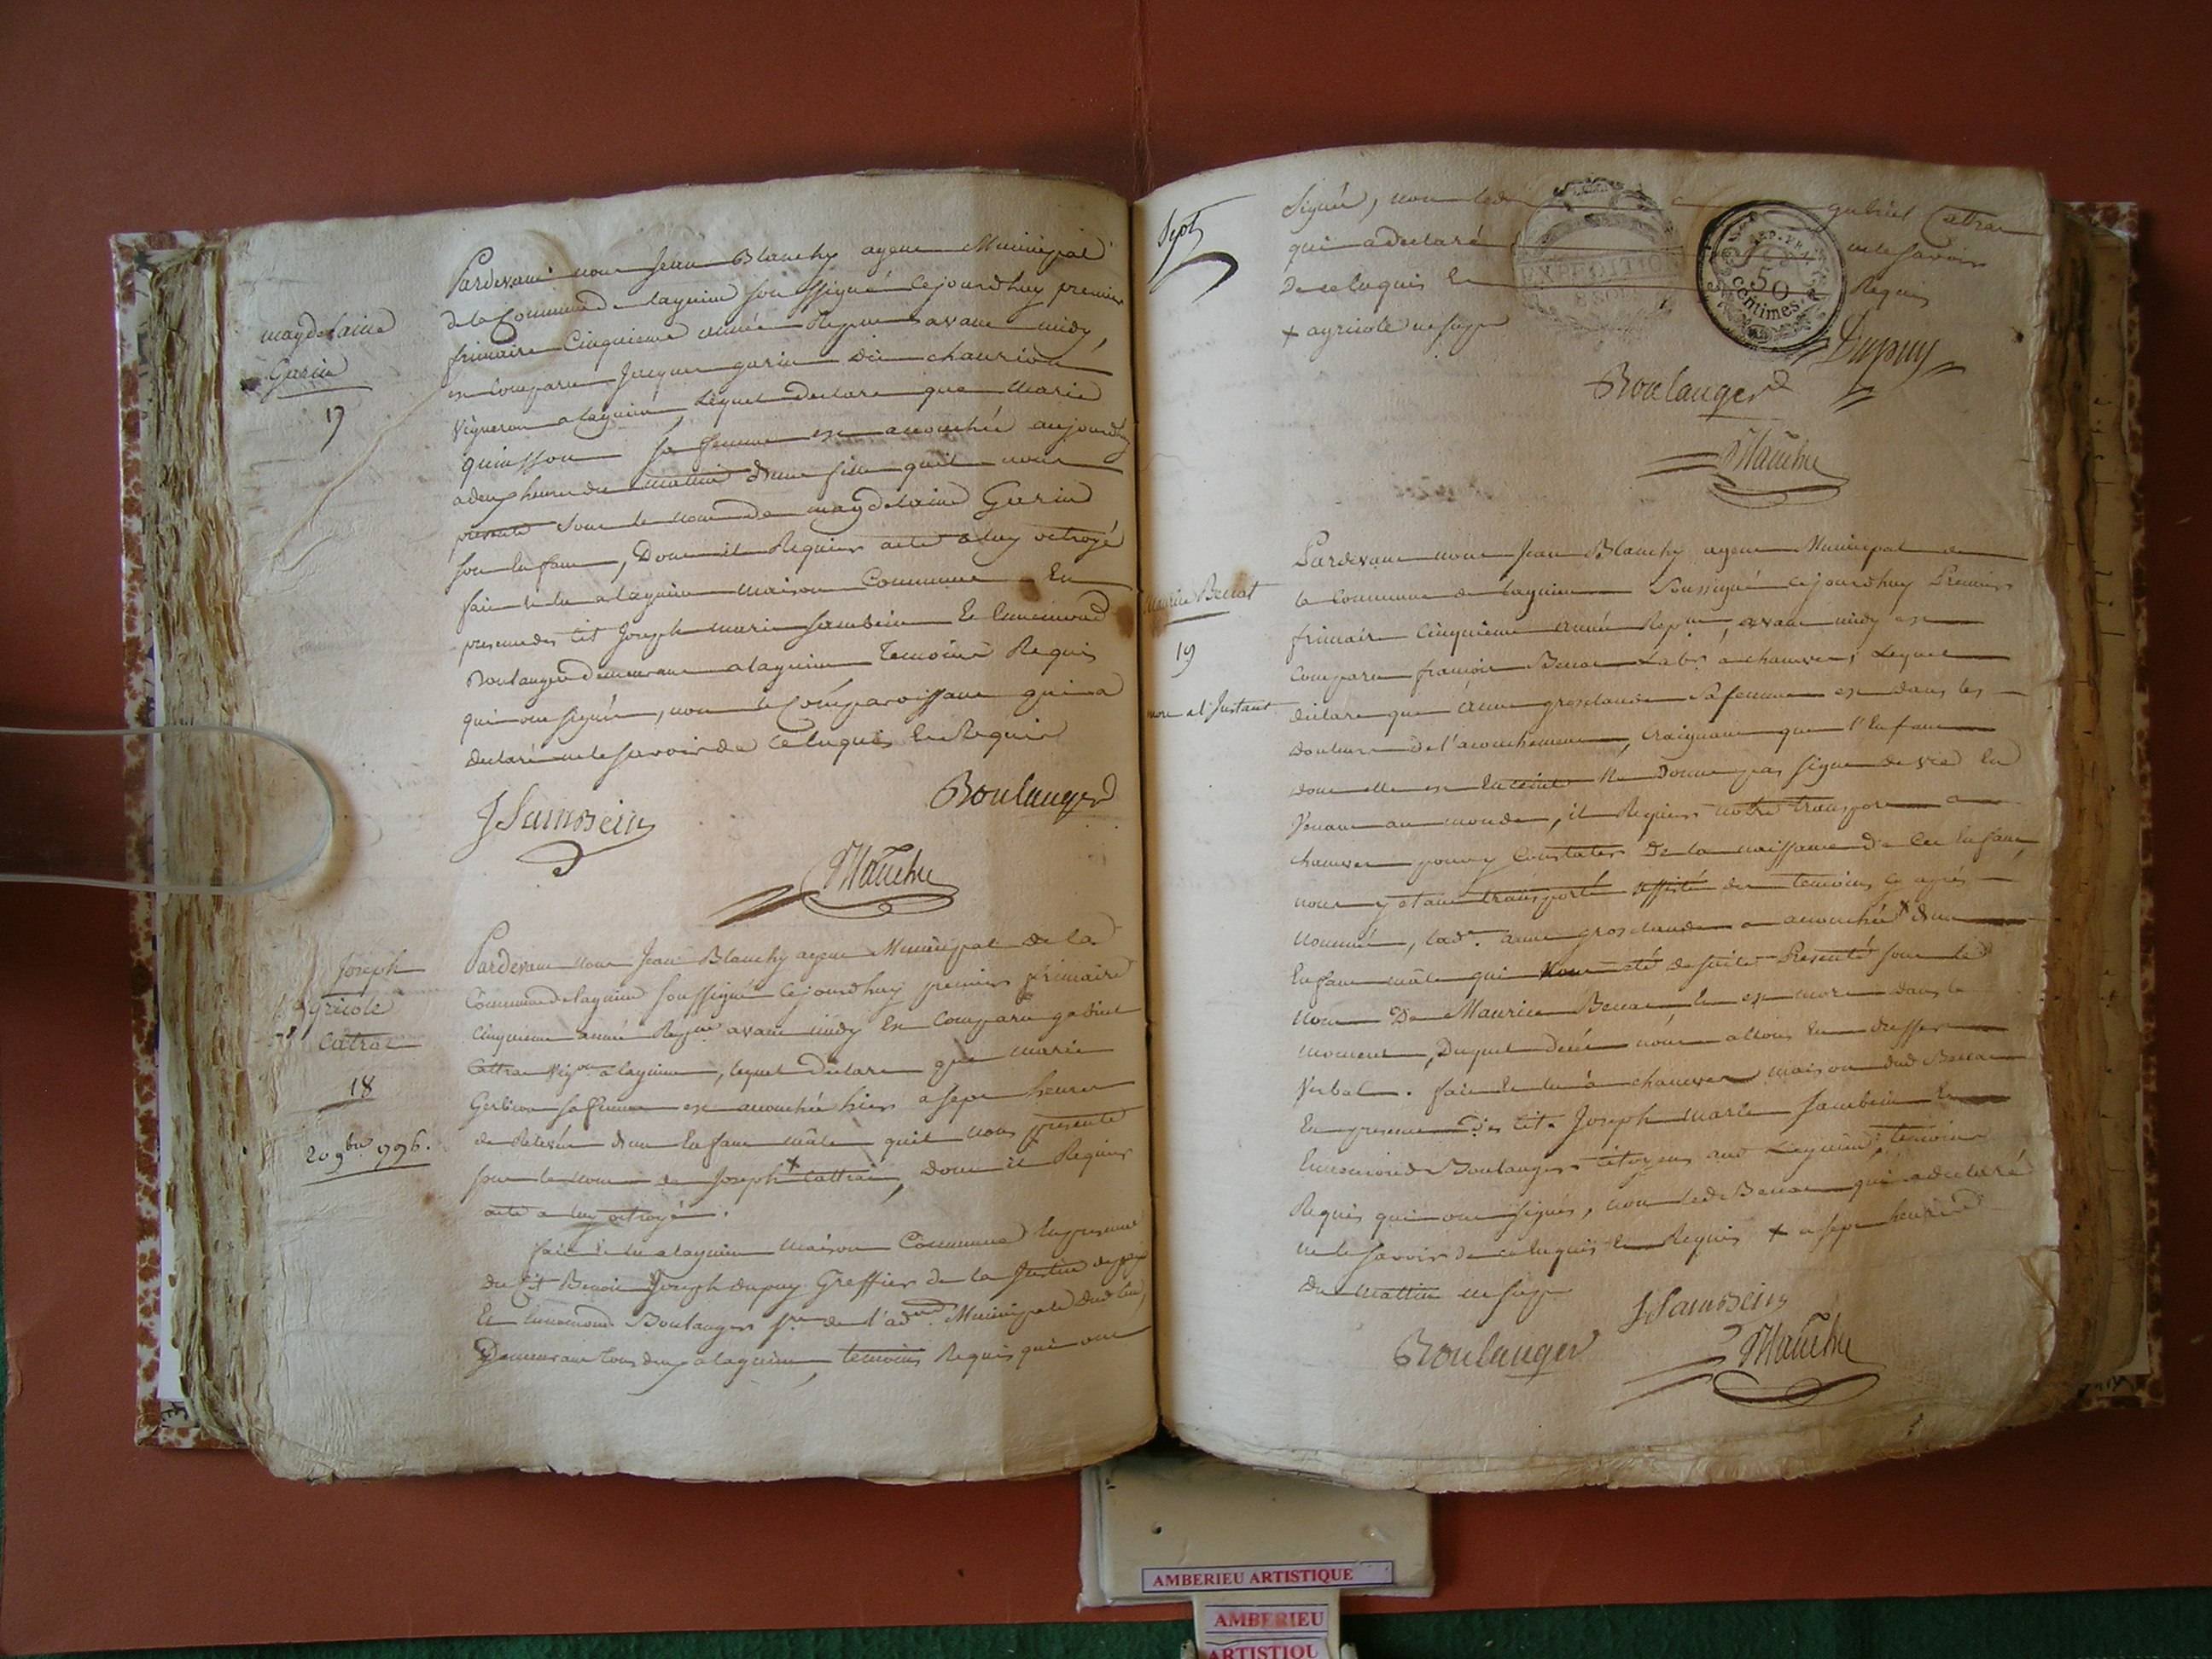 magdelaine
Garin
17
Pardevant nous Jean Blanchy agent Municipal
de la Commune de lagnieu soussigné cejourdhuy premier
frimaire Cinquieme année Repne avant midy,
est comparu Jacques garin dit chaurion
Vigneron a lagnieu, lequel declare que Marie
quinsson sa femme est acouchée aujourdhuy
a deux heures du mattin d'une fille quil nous
presente sous le nom de magdelaine Garin
son enfant, Dont il Requiert acte a luy octroyé
fait et lu a lagnieu maison Commune En
presence des cit Joseph marie sambein Et Ennemond
Boulanger demeurant a lagnieu Temoins Requis
qui ont signés, non le Comparoissant qui a
declaré ne le savoir de ce Enquis et Requis
JSambein
Boulanger
Blanchy
Joseph
agricole
Cattrat
18
20 9bre 1796.
Pardevant nous Jean Blanchy agent Municipal de la
Commune de lagnieu soussigné cejourdhuy premier frimaire
cinquieme année Repne avant midy Est Comparu gabriel
Cattrat Vigon a lagnieu, lequel declare que marie
Gerbion sa femme est acouchée hier a sept heures
de Relevée d'un Enfant mâle quil nous presente
sous le nom de Joseph + Cattrat, dont il Requiert
acte a luy octroyé.
fait et lu a lagnieu maison Commune En presence
du Cit Benoit Joseph dupuy Greffier de la Justice de paix
Et Ennemond Boulanger sre de l'adon Municipale dud lieu,
Demeurant tous deux a lagnieu, temoins Requis qui ont
Sept
Signé, non led gabriel Cattrat
qui a declaré ne le savoir
De ce Enquis et Requis
+ agricole
EXPEDITION
8 SOLS
REP. FRA
50
centimes
Dupuy
Boulanger
Blanchy
Maurice Benat
19
mort a l'Instant
Pardevant nous Jean Blanchy agent Municipal de
la Commune de lagnieu Soussigné cejourdhuy Premier
frimaire Cinquieme année Repne, avant midy est
Comparu françois Benat Labr a chamver; Lequel
declare que Anne grosclaude Sa femme est dans les
douleurs de l'acouchement, Craignant que l'Enfant
dont elle est Enceinte Ne Donne pas signe de vie En
Venant au monde, il Requiert notre transport a
chamver pour y Constater De la naissance de Cet Enfant,
nous y etant transporté assisté des temoins cy après
Nommés, lade. anne grosclaude a acouchée + d'un
Enfant mâle qui Nous été de suite Presenté sous le
Nom De Maurice Benat, Et est mort dans le
moment, Duquel décés nous allons En dresser
Verbal. fait et lu à chamver maison dud Benat
En presence Des Cit. Joseph Marie Sambein Et
Ennemond Boulanger citoyens aud Lagnieu, temoins
Requis qui ont signés, non led Benat qui a declaré
ne le savoir de ce Enquis et Requis + a sept heures
du mattin
JSambein
Boulanger
Blanchy
AMBERIEU ARTISTIQUE
AMBERIEU
ARTISTIQU